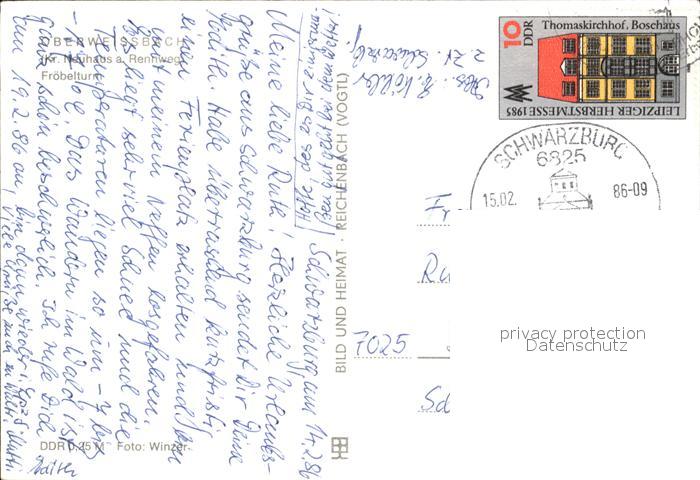 OBERWEISSBACH
(Kr. Neuhaus a. Rennweg)
Fröbelturm
Schwarzburg, am 14.2.86
Meine liebe Ruth! Herzliche Urlaubs-
grüße aus Schwarzburg sendet Dir Deine
Edith. Habe überraschend kurzfristig
einen Ferienplatz erhalten und bin
mit meinem Neffen losgefahren.
Es liegt sehr viel Schnee und die
Temperaturen liegen so um -7 bis
Das Wandern im Wald ist
ganz schön beschwerlich. Ich rufe Dich
zum 19.2.86 an, bin dann wieder
Viele Grüße auch an
DDR 0,25 M Foto: Winzer
BILD UND HEIMAT · REICHENBACH (VOGTL)
Abs.: E. Köhler
z. Zt. Schwarzbg.
10
DDR
Thomaskirchhof, Boschaus
LEIPZIGER HERBSTMESSE 1985
SCHWARZBURG
6825
15.02. 86-09
Fr
Ru
7025
Sc
privacy protection
Datenschutz